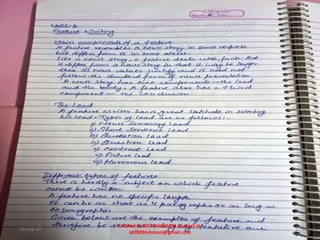 Unit-2
Feature Writing
Main components of a feature
A feature resembles a news story in some respects
but differs from it in some others.
Like a news story, a feature deals with facts. But
it differs from a news story in that it may be longer
than a news in and it need not
follow the standard form of news presentation
A news story has two components - the lead
and the body. A feature also has a third
component - the conclusion
The Lead
A feature writer has a great latitude in selecting
his lead. Types of lead are as follows:-
News Summary Lead
Short Sentence Lead
Quotation Lead
Question Lead
Contrast Lead
Picture Lead
Humorous Lead
Different types of features
There is hardly a subject on which feature
cannot be written.
A feature has no specific length
It can be as short as 4 paragraphs or as long as
paragraphs
Given below are the examples of feature and
therefore be